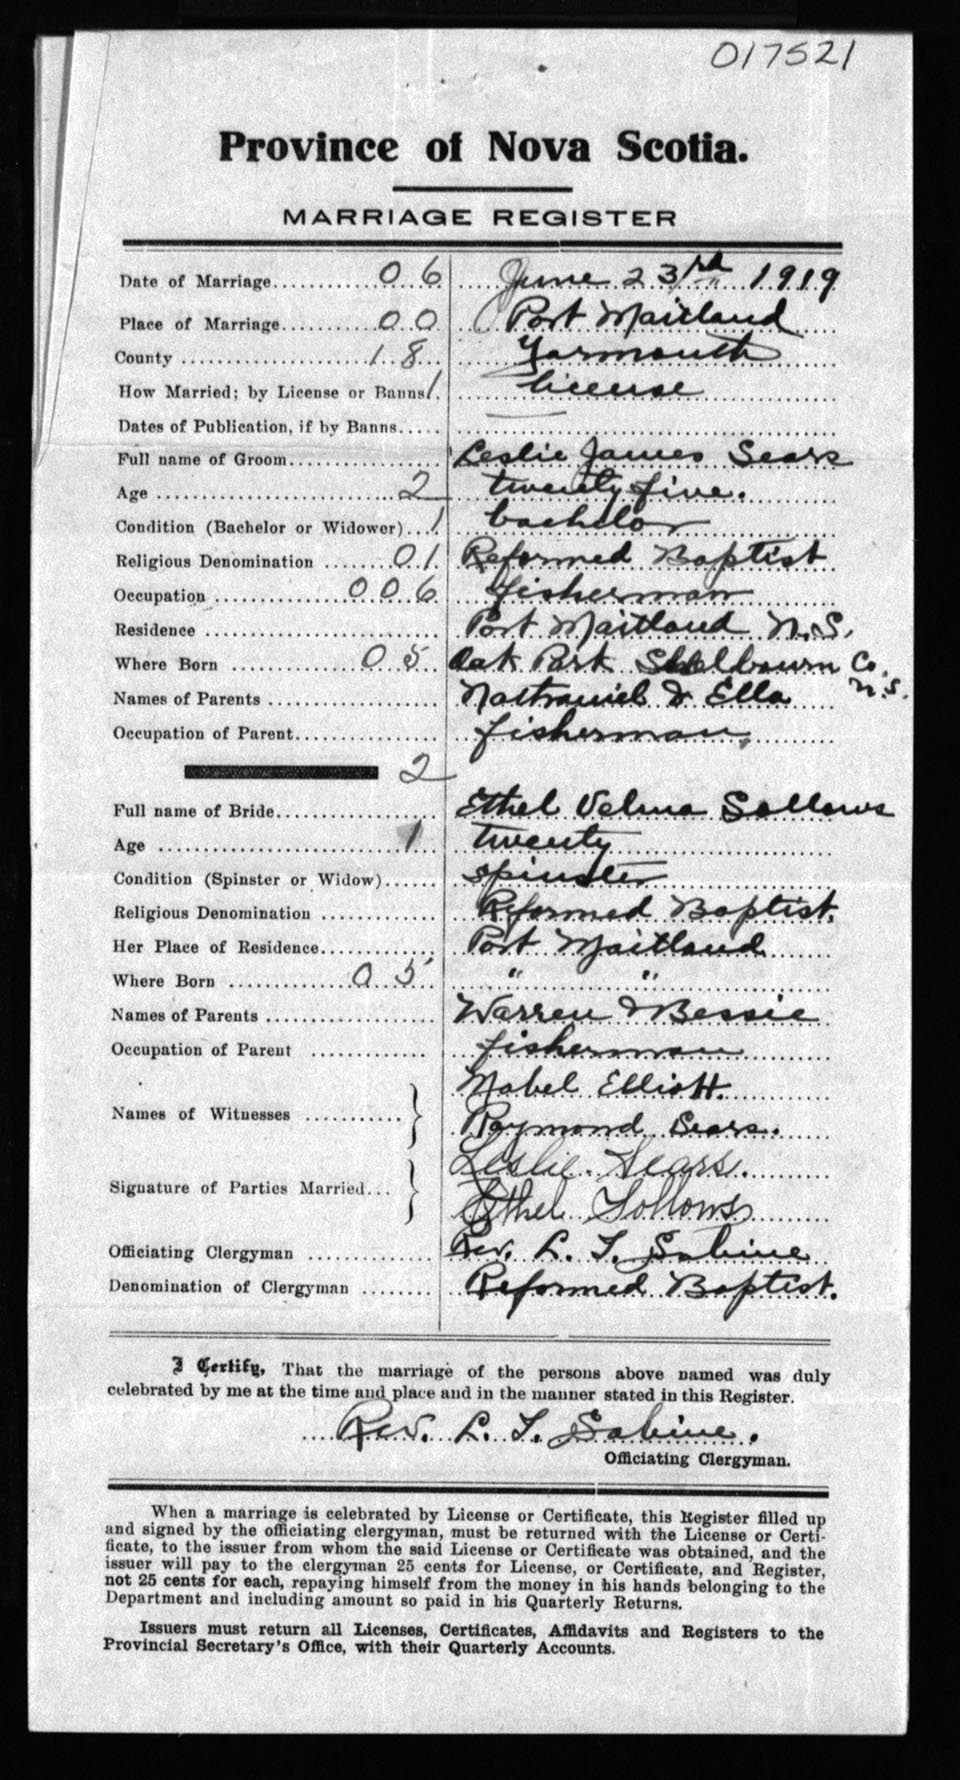 017521
Province of Nova Scotia.
MARRIAGE REGISTER
Date of Marriage............ 0 6 June 23rd 1919
Place of Marriage........... 0 0 Port Maitland
County ..................... 1 8 Yarmouth
How Married; by License or Banns 1 license
Dates of Publication, if by Banns..... —
Full name of Groom.................. Leslie James Sears
Age ........................ 2 twenty five.
Condition (Bachelor or Widower)... 1 bachelor
Religious Denomination ....... 0 1 Reformed Baptist
Occupation ............. 0 0 6 fisherman
Residence ........................... Port Maitland N.S.
Where Born ............. 0 5 Oak Park Shelbourn Co. N.S.
Names of Parents .................... Nathaniel & Ella
Occupation of Parent................. fisherman
2
Full name of Bride................... Ethel Velma Sollows
Age ........................ 1 twenty
Condition (Spinster or Widow)...... spinster
Religious Denomination ............. Reformed Baptist.
Her Place of Residence.............. Port Maitland
Where Born ............. 0 5 " "
Names of Parents .................... Warren & Bessie
Occupation of Parent ............... fisherman
Names of Witnesses ........... } Mabel Elliott.
Raymond Sears.
Signature of Parties Married... } Leslie Sears.
Ethel Sollows
Officiating Clergyman ............... Rev. L. T. Sabine
Denomination of Clergyman ........ Reformed Baptist.
I Certify, That the marriage of the persons above named was duly
celebrated by me at the time and place and in the manner stated in this Register.
Rev. L. T. Sabine.
Officiating Clergyman.
When a marriage is celebrated by License or Certificate, this Register filled up
and signed by the officiating clergyman, must be returned with the License or Certi-
ficate, to the issuer from whom the said License or Certificate was obtained, and the
issuer will pay to the clergyman 25 cents for License, or Certificate, and Register,
not 25 cents for each, repaying himself from the money in his hands belonging to the
Department and including amount so paid in his Quarterly Returns.
Issuers must return all Licenses, Certificates, Affidavits and Registers to the
Provincial Secretary's Office, with their Quarterly Accounts.